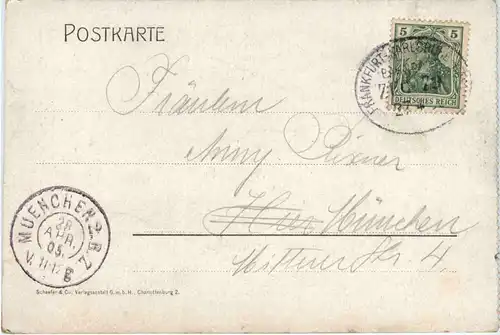 POSTKARTE
5 5
DEUTSCHES REICH
FRANKFURT
Fräulein
Anny Rixner
Hier München
Wittner Str. 4.
MUENCHEN 2. B.Z.
28
APR.
05.
V. 11-12
Schaefer & Co., Verlagsanstalt G. m. b. H., Charlottenburg 2.